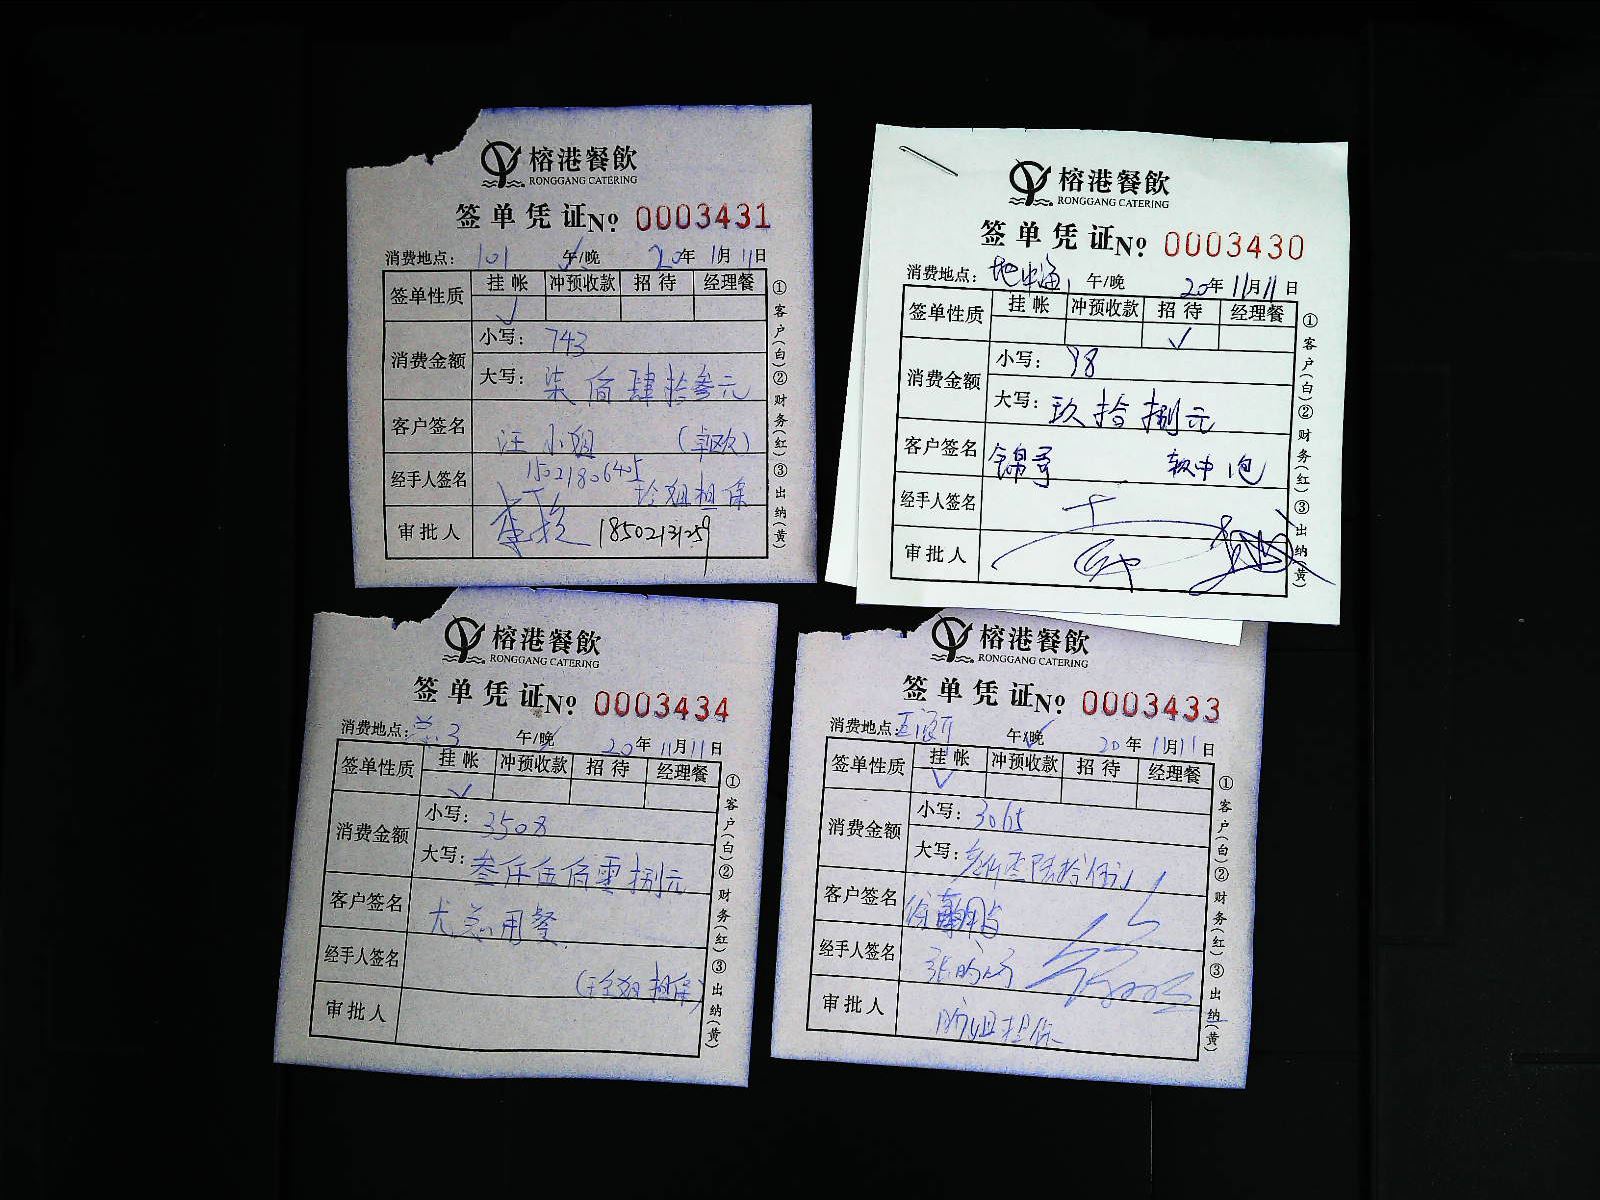 榕港餐飲
RONGGANG CATERING
签单凭证 No 0003431
消费地点: 101 午/晚 20年11月11日
签单性质 挂帐 冲预收款 招待 经理餐
✓
消费金额 小写: 743
大写: 柒佰肆拾叁元
客户签名 汪小姐 (卓欧)
15021806405
经手人签名 玲姐担保
审批人 18502131259
①客户(白)②财务(红)③出纳(黄)
榕港餐飲
RONGGANG CATERING
签单凭证 No 0003430
消费地点: 地中海 午/晚 20年11月11日
签单性质 挂帐 冲预收款 招待 经理餐
✓
消费金额 小写: 98
大写: 玖拾捌元
客户签名 锦哥 软中1包
经手人签名
审批人
①客户(白)②财务(红)③出纳(黄)
榕港餐飲
RONGGANG CATERING
签单凭证 No 0003434
消费地点: 午/晚 20年11月11日
签单性质 挂帐 冲预收款 招待 经理餐
✓
消费金额 小写: 3508
大写: 叁仟伍佰零捌元
客户签名 尤总用餐
经手人签名 (玲姐担保)
审批人
①客户(白)②财务(红)③出纳(黄)
榕港餐飲
RONGGANG CATERING
签单凭证 No 0003433
消费地点: 午/晚 20年11月11日
签单性质 挂帐 冲预收款 招待 经理餐
✓
消费金额 小写: 3065
大写: 叁仟零陆拾伍元
客户签名
经手人签名
审批人 姐担保
①客户(白)②财务(红)③出纳(黄)